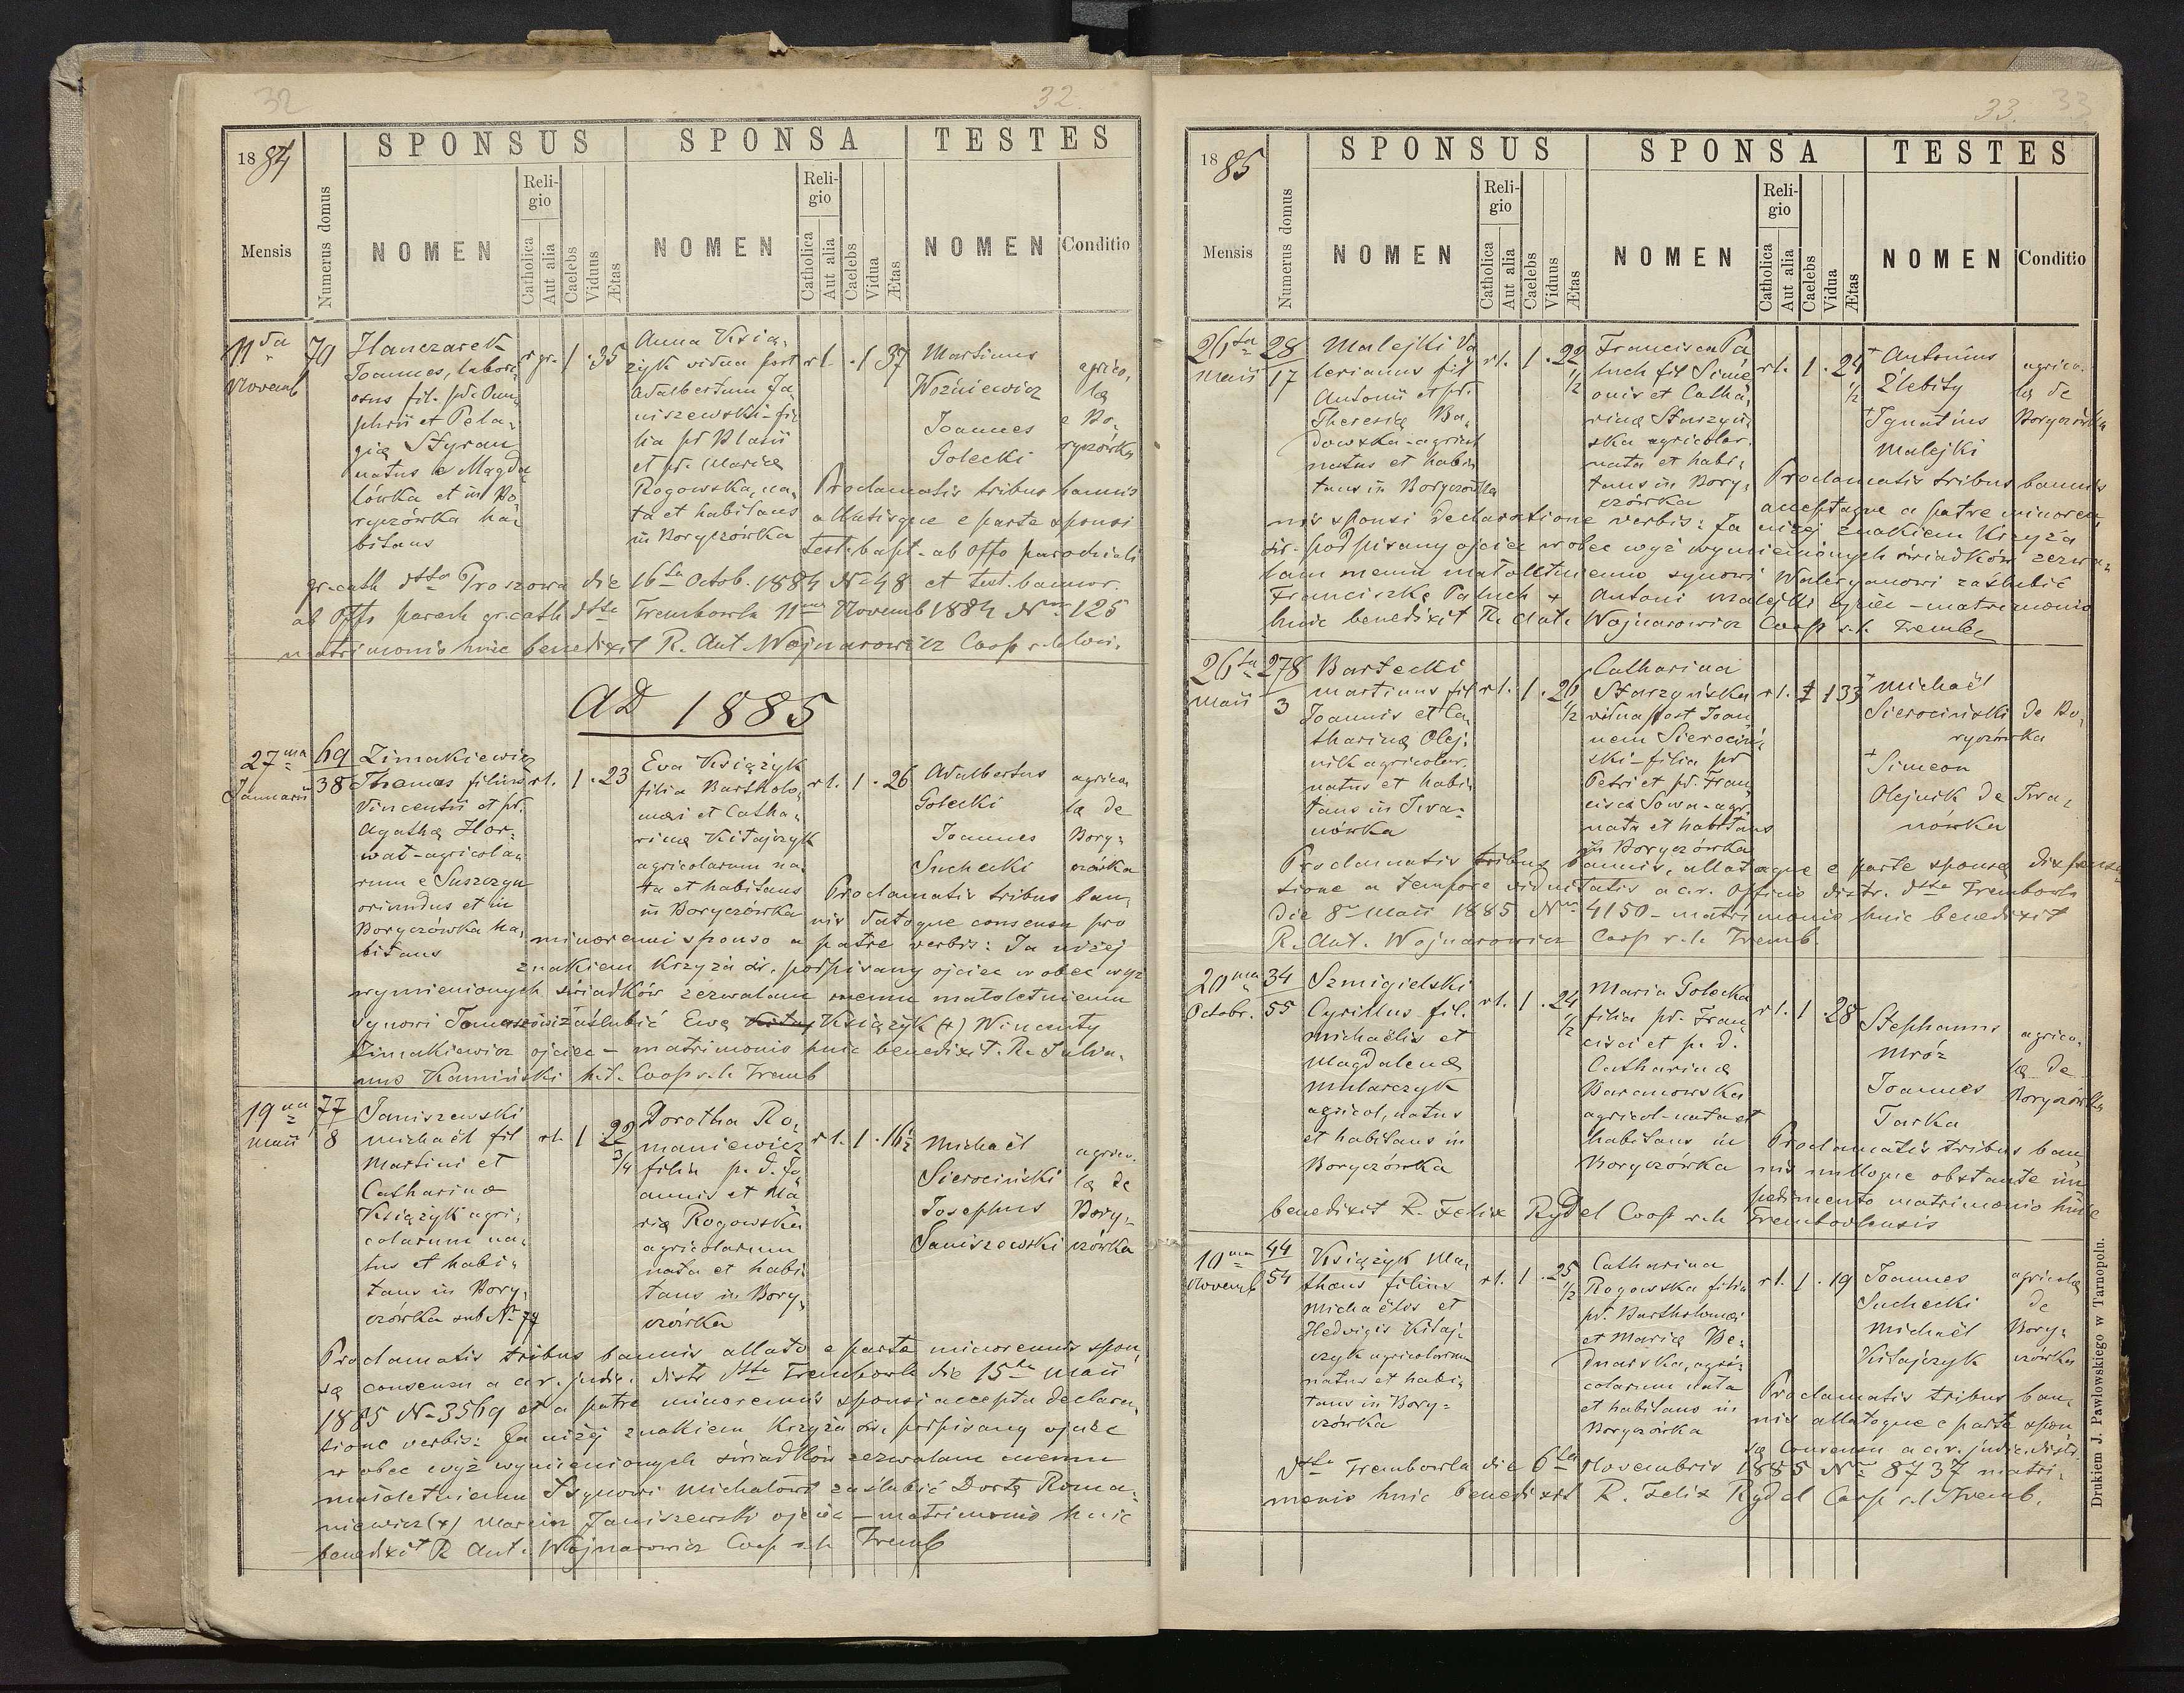 32
32.
1884
SPONSUS
SPONSA
TESTES
Mensis
Numerus domus
NOMEN
Religio
Catholica
Aut alia
Caelebs
Viduus
Ætas
NOMEN
Religio
Catholica
Aut alia
Caelebs
Vidua
Ætas
NOMEN
Conditio
11
Novemb
79
Hanczarek
Joannes, labori
osus fil. pd. Onu
phrii et Pela,
giæ Styran
natus e Magda
lówka et in Bo
ryczówka ha,
bitans
r gr. 1 . 35
Anna Ksią,
zyk vidua post
Adalbertum Ja
niszewski - fi,
lia pd Blasii
et pd. Mariæ
Rogowska, na,
ta et habitans
in Boryczówka
rl. . 1 37
Martinus
Woźniewicz
Joannes
Gołecki
agrico,
læ
e Bo,
ryczówka
Proclamatis tribus bannis
allatisque e parte sponsi
test. bapt. ab offo parochiali
gr. cath dtto Proszowa die 16ta Octob. 1884 N-48 et test. bannor.
ab offo paroch gr. cath dtto Trembowla 11ma Novemb 1884 Nro 125
matrimonio huic benedixit R. Ant. Wojnarowicz Coop
AD 1885
27ma
Januarii
69
38
Zimakiewicz
Thomas filius
Vincentii et pd.
Agathæ Hor,
wat - agricola,
rum e Suszczyn
oriundus et in
Boryczówka ha,
bitans
rl. 1 . 23
Eva Książyk
filia Bartholo,
mæi et Catha,
rinæ Kitajczyk
agricolarum na,
ta et habitans
in Boryczówka
rl. 1 . 26
Adalbertus
Gołecki
Joannes
Suchecki
agrico,
læ de
Bory,
czówka
Proclamatis tribus ban,
nis datoque consensu pro
minorenni sponso a patre verbis: Ja niżej
znakiem krzyża św. podpisany ojciec wobec wyż
wymienionych świadków zezwalam memu małoletniemu
synowi Tomaszowi zaślubić Ewę Książyk (+) Wincenty
Zimakiewicz ojciec - matrimonio huic benedixit R. Julia,
nus Kamiński h.t. Coop r.l. Tremb
19na
Maii
77
8
Janiszewski
Michaël fil
Martini et
Catharinæ
Książyk agri,
colarum na,
tus et habi,
tans in Bory,
czówka sub N 77
rl. 1 . 22 3/4
Dorotha Ro,
maniewicz
filia p. d. Jo
annis et Ma
riæ Rogowska
agricolarum
nata et habi,
tans in Bory,
czówka
rl. 1 . 16 1/2
Michaël
Sierociński
Josephus
Janiszewski
agrico,
læ de
Bory,
czówka
Proclamatis tribus bannis allato e parte minorennis spon,
sæ consensu a c.r. judic. distr dtto Trembowla die 15ta Maii
1885 N-3569 et a patre minorennis sponsi accepta declara,
tione verbis: Ja niżej znakiem krzyża św. podpisany ojciec
w obec wyż wymienionych świadków zezwalam memu
małoletniemu Synowi Michałowi zaślubić Dortę Roma,
niewicz (+) Marcin Janiszewski ojciec - matrimonio huic
benedixit R Ant. Wojnarowicz Coop r.l. Tremb
33.
33
1885
SPONSUS
SPONSA
TESTES
Mensis
Numerus domus
NOMEN
Religio
Catholica
Aut alia
Caelebs
Viduus
Ætas
NOMEN
Religio
Catholica
Aut alia
Caelebs
Vidua
Ætas
NOMEN
Conditio
26ta
Maii
28
17
Malejki Va
lerianus fil
Antonii et pd.
Theresiæ Ba,
dowska - agricol
natus et habi,
tans in Boryczówka
rl. 1 . 22 1/2
Francisca Pa
luch fil Sime
onis et Catha,
rinæ Starzyń,
ska agricolar.
nata et habi,
tans in Bory,
czówka
rl. 1 . 24 1/2
+ Antonius
Źlebity
+ Ignatius
Malejki
agrico,
læ de
Boryczówka
Proclamatis tribus bannis
acceptaque a patre minoren,
nis sponsi declaratione verbis: Ja niżej znakiem krzyża
św. podpisany ojciec wobec wyż wymienionych świadków zezwa,
lam memu małoletniemu synowi Waleryanowi zaślubić
Franciszkę Paluch + Antoni Malejki ojciec - matrimonio
huic benedixit R. Ant. Wojnarowicz Coop r.l. Tremb
26ta
Maii
278
3
Bartecki
Martinus fil
Joannis et Ca,
tharinæ Olej,
nik agricolar.
natus et habi,
tans in Iwa,
nówka
rl. 1 . 26 1/2
Catharina
Starzyńska
vidua post Joan
nem Sierociń,
ski - filia pd
Petri et pd. Fran,
ciscæ Sowa - agr.
nata et habitans
in Boryczówka
rl. 1 33
+ Michaël
Sierociński de Bo,
ryczówka
+ Simeon
Olejnik de Iwa,
nówka
Proclamatis tribus bannis, allataque e parte sponsæ dispensa,
tione a tempore viduitatis a c.r. officio distr. dtto Trembowla
die 8 Maii 1885 Nro 4150 - matrimonio huic benedixit
R. Ant. Wojnarowicz Coop r.l. Tremb.
20ma
Octobr.
34
55
Szmigielski
Cyrillus fil.
Michaëlis et
Magdalenæ
Mularczyk
agricol, natus
et habitans in
Boryczówka
rl. 1 . 24 1/2
Maria Gołecka
filia pd. Fran,
cisci et p. d.
Catharinæ
Baranowska
agricol - nata et
habitans in
Boryczówka
rl. 1 . 28
Stephanus
Mróz
Joannes
Tarka
agrico,
læ de
Boryczówka
Proclamatis tribus ban,
nis nulloque obstante im
pedimento matrimonio huic
benedixit R. Felix Rydel Coop r.l. Trembovlensis
10ma
Novemb
44
54
Książyk Ma,
thæus filius
Michaëlis et
Hedvigis Kitaj,
czyk agricolarum
natus et habi,
tans in Bory,
czówka
rl. 1 . 25 1/2
Catharina
Rogowska filia
pd. Bartholomæi
et Mariæ Be,
dnarska, agri,
colarum nata
et habitans in
Boryczówka
rl. 1 . 19
Joannes
Suchecki
Michaël
Kitajczyk
agricolæ
de
Bory,
czówka
Proclamatis tribus ban,
nis allatoque e parte spon,
sæ consensu a c.r. judic. distr.
dtto Trembowla die 6ta Novembris 1885 Nro 8737 matri,
monio huic benedixit R. Felix Rydel Coop r.l. Tremb.
Drukiem J. Pawłowskiego w Tarnopolu.